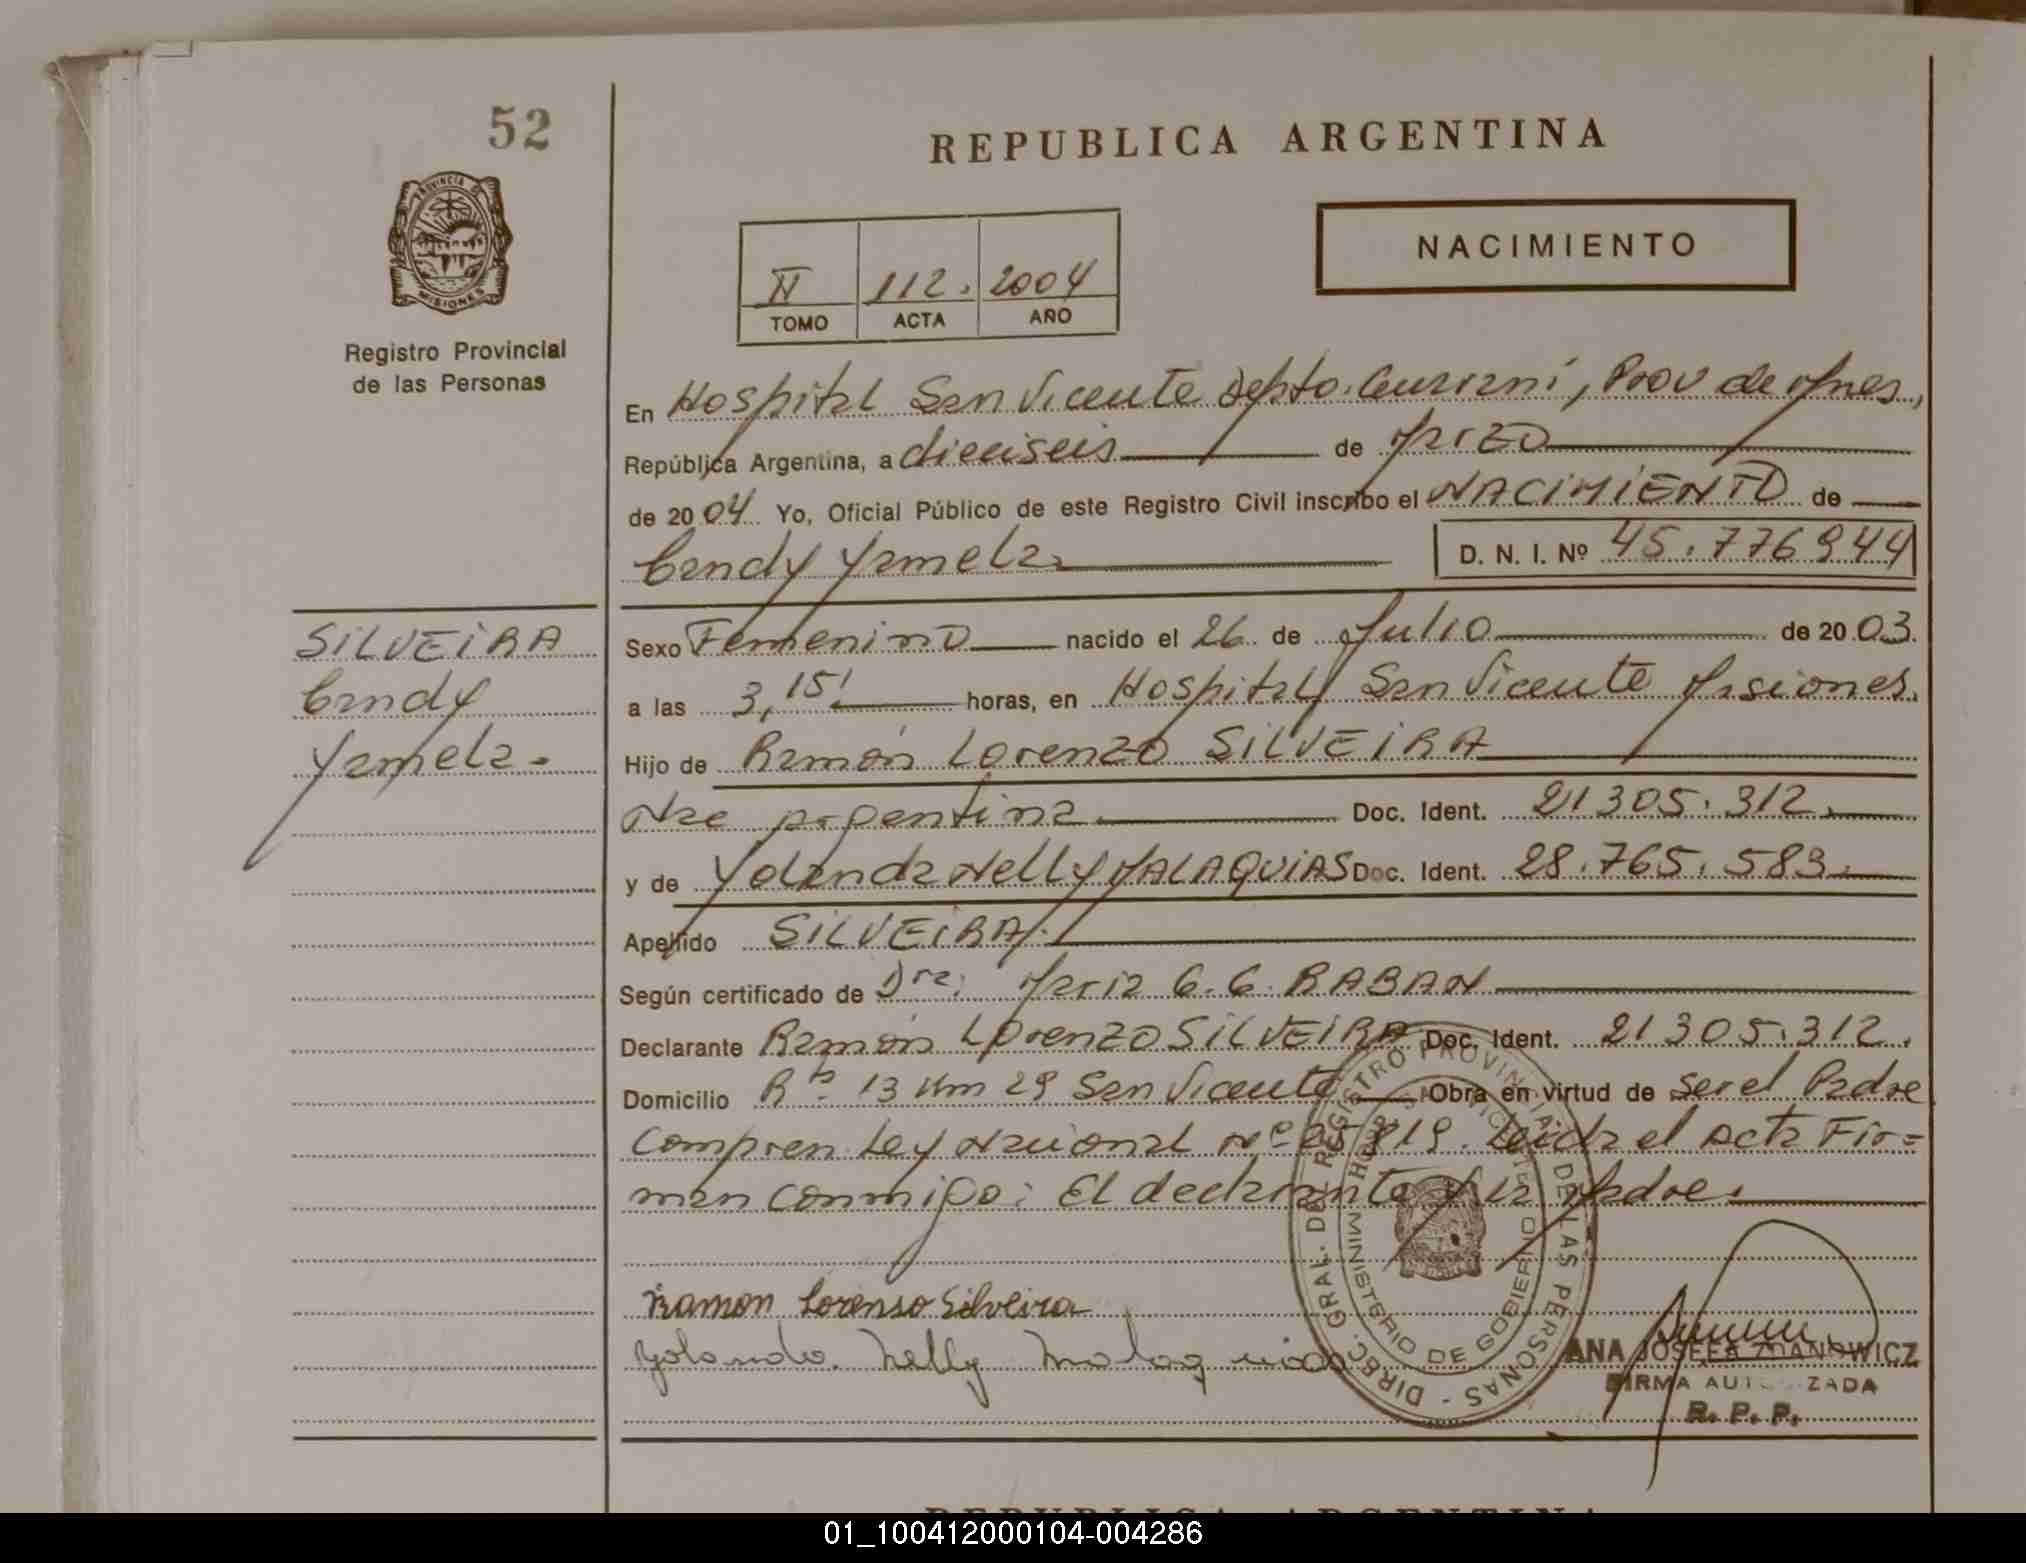 52
REPUBLICA ARGENTINA
PROVINCIA DE
MISIONES
Registro Provincial
de las Personas
NACIMIENTO
II 112. 2004
TOMO ACTA AÑO
En Hospital San Vicente Depto. Guaraní, Prov de Mnes,
República Argentina, a dieciseis de Marzo
de 2004 Yo, Oficial Público de este Registro Civil inscribo el NACIMIENTO de
Candy Yamela D. N. I. Nº 45.776944
SILVEIRA
Candy
Yamela.
Sexo Femenino nacido el 26 de Julio de 2003.
a las 3,15' horas, en Hospital San Vicente Misiones.
Hijo de Ramón Lorenzo SILVEIRA
Nac Argentina Doc. Ident. 21305.312.
y de Yolanda Nelly MALAQUIAS Doc. Ident. 28.765.583.
Apellido SILVEIRA.
Según certificado de Dra: Maria G. G. RABAN
Declarante Ramón Lorenzo SILVEIRA Doc. Ident. 21305.312.
Domicilio Rta. 13 Km 29 San Vicente Obra en virtud de ser el Padre
Compren. Ley Nacional Nº 25819. Leida el Acta Fir=
man conmigo: El declarante y la Madre.
Ramon Lorenso Silveira
Yolanda. Nelly Malaquias
DIREC. GRAL. DEL REGISTRO PROVINCIAL DE LAS PERSONAS -
MINISTERIO DE GOBIERNO
ANA JOSEFA ZDANOWICZ
FIRMA AUTORIZADA
R. P. P.
REPUBLICA ARGENTINA
01_100412000104-004286